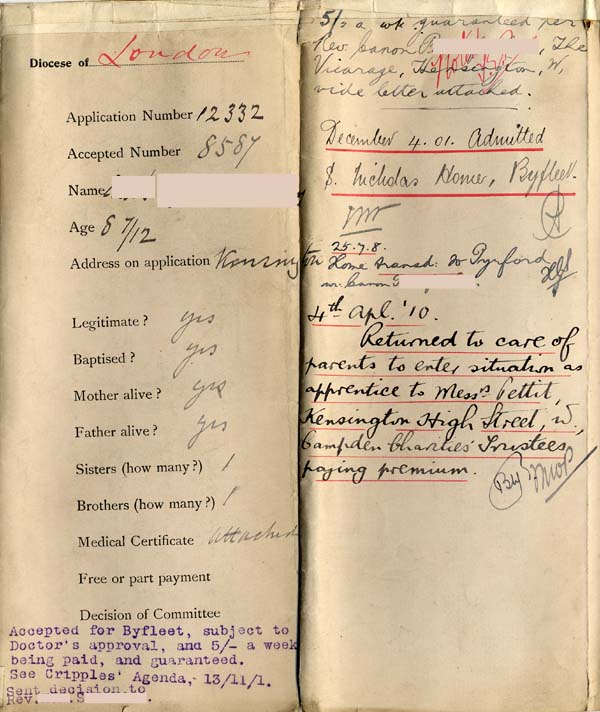 Diocese of London
Application Number 12332
Accepted Number 8587
Name
Age 8 7/12
Address on application Kensington
Legitimate? yes
Baptised? yes
Mother alive? yes
Father alive? yes
Sisters (how many?) 1
Brothers (how many?) 1
Medical Certificate attached
Free or part payment
Decision of Committee
Accepted for Byfleet, subject to
Doctor's approval, and 5/- a week
being paid, and guaranteed.
See Cripples' Agenda,- 13/11/1.
Sent decision to
Rev. S
5/- a wk guaranteed per
Rev. Canon The
Vicarage, Kensington, W,
vide letter attached.
December 4. 01. Admitted
S. Nicholas Home, Byfleet.
25.7.8.
Home transd. to Pyrford
Canon
4th Apl. '10.
Returned to care of
parents to enter situation as
apprentice to Messrs Pettit,
Kensington High Street, W,
Campden Charities' Trustees
paying premium.